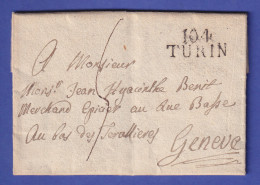 104
TURIN
A Monsieur
Monsr. Jean Hyacinthe Benit
Merchand Epicier au Rue Basse
Au bas des Serallieres
Geneve